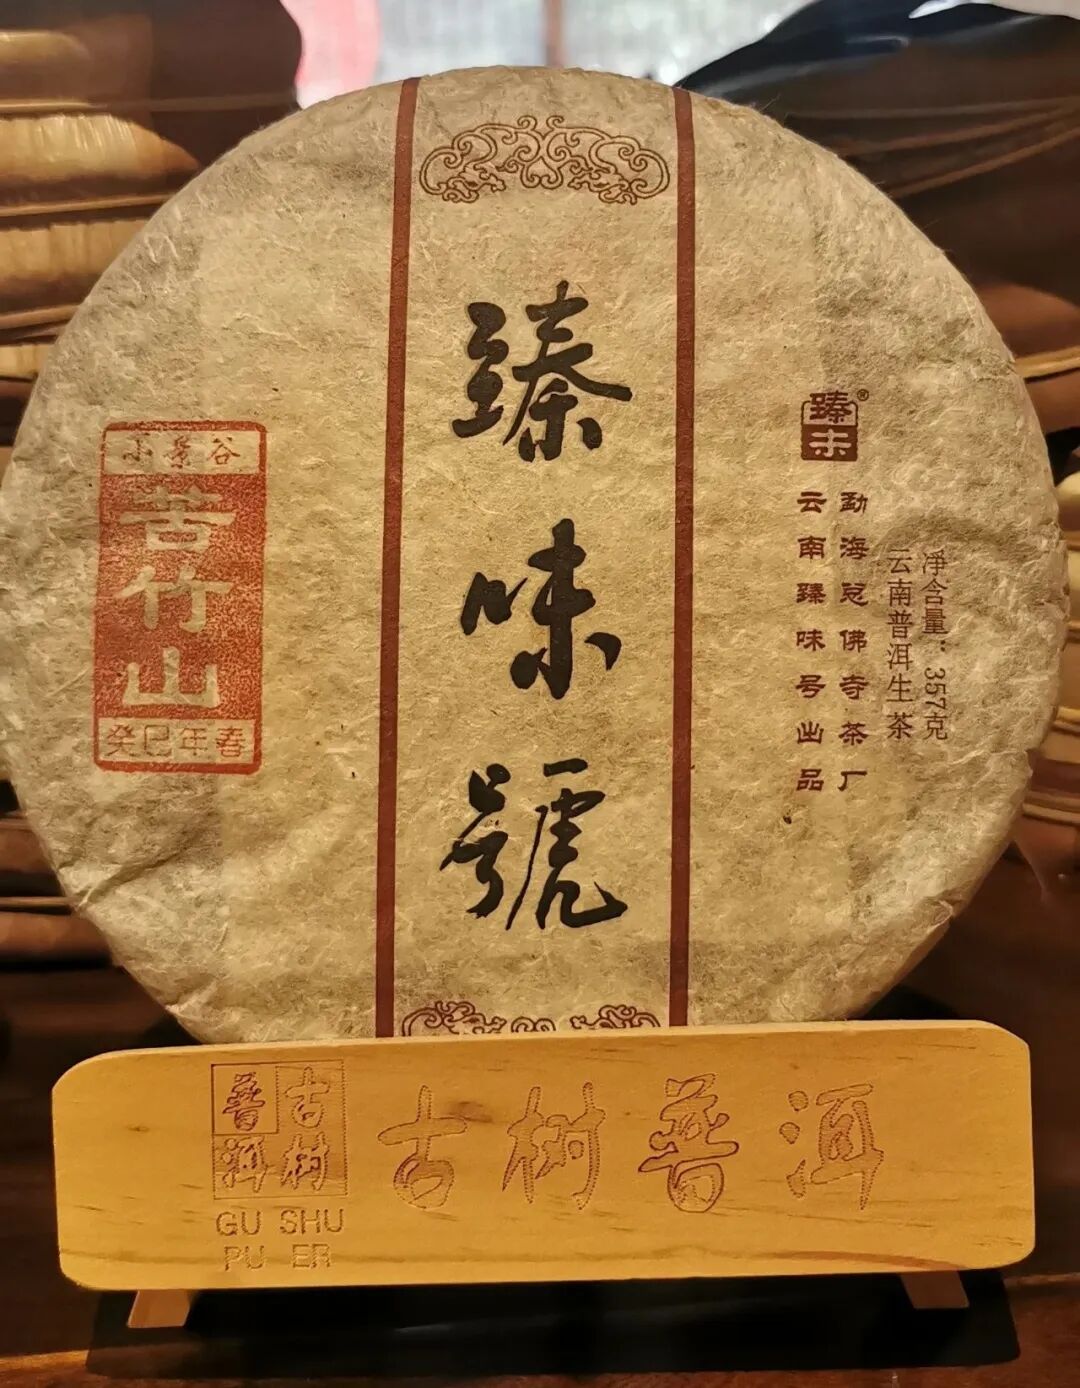 臻味號
小景谷
苦竹山
癸巳年春
臻未®
勐海总佛寺茶厂
云南臻味号出品
净含量：357克
云南普洱生茶
古树
普洱
GU SHU
PU ER
古树普洱